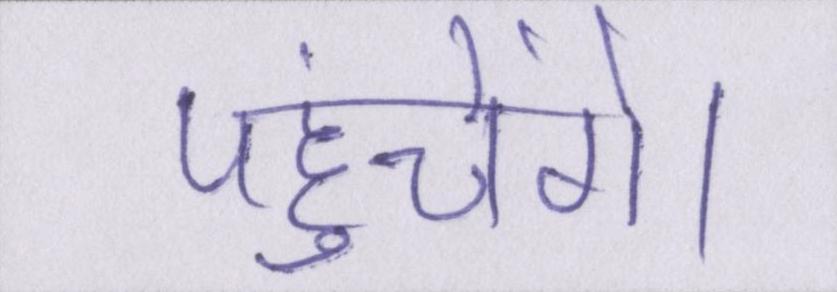 पहुंचेंगे।